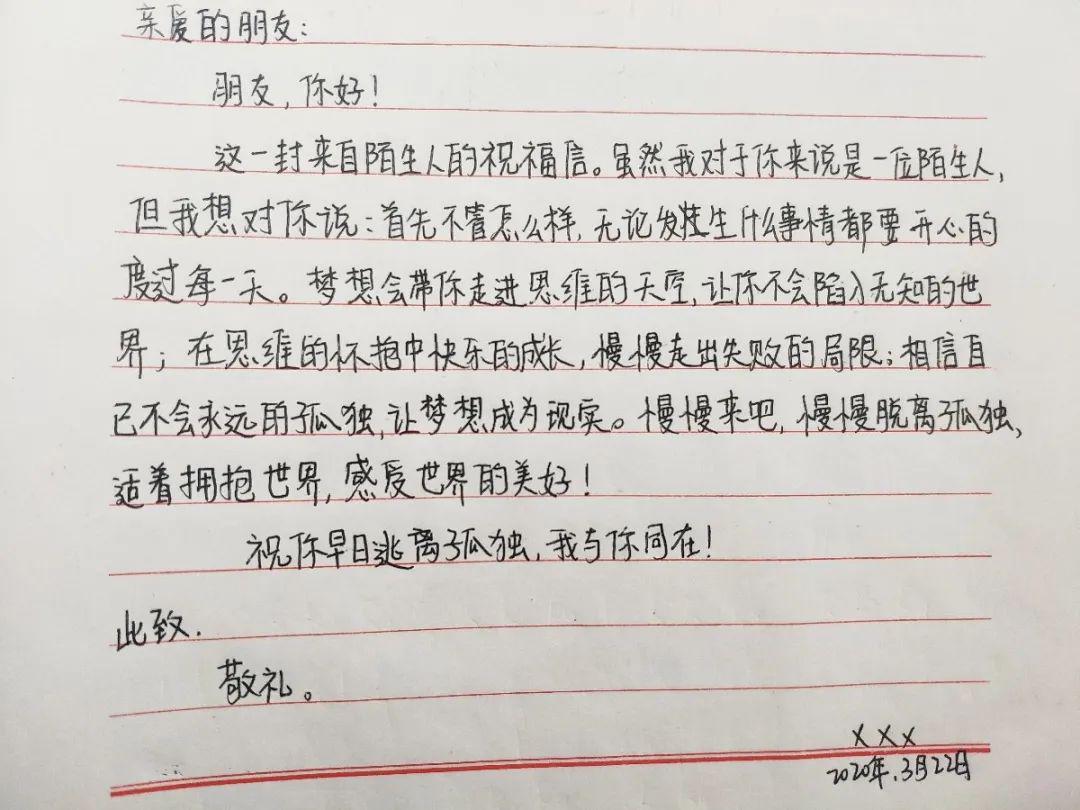 亲爱的朋友：
朋友，你好！
这一封来自陌生人的祝福信。虽然我对于你来说是一位陌生人，
但我想对你说：首先不管怎么样，无论发生什么事情都要开心的
度过每一天。梦想会带你走进思维的天空，让你不会陷入无知的世
界；在思维的怀抱中快乐的成长，慢慢走出失败的局限；相信自
己不会永远的孤独，让梦想成为现实。慢慢来吧，慢慢脱离孤独，
试着拥抱世界，感受世界的美好！
祝你早日逃离孤独，我与你同在！
此致．
敬礼。
×××
2020年.3月22日